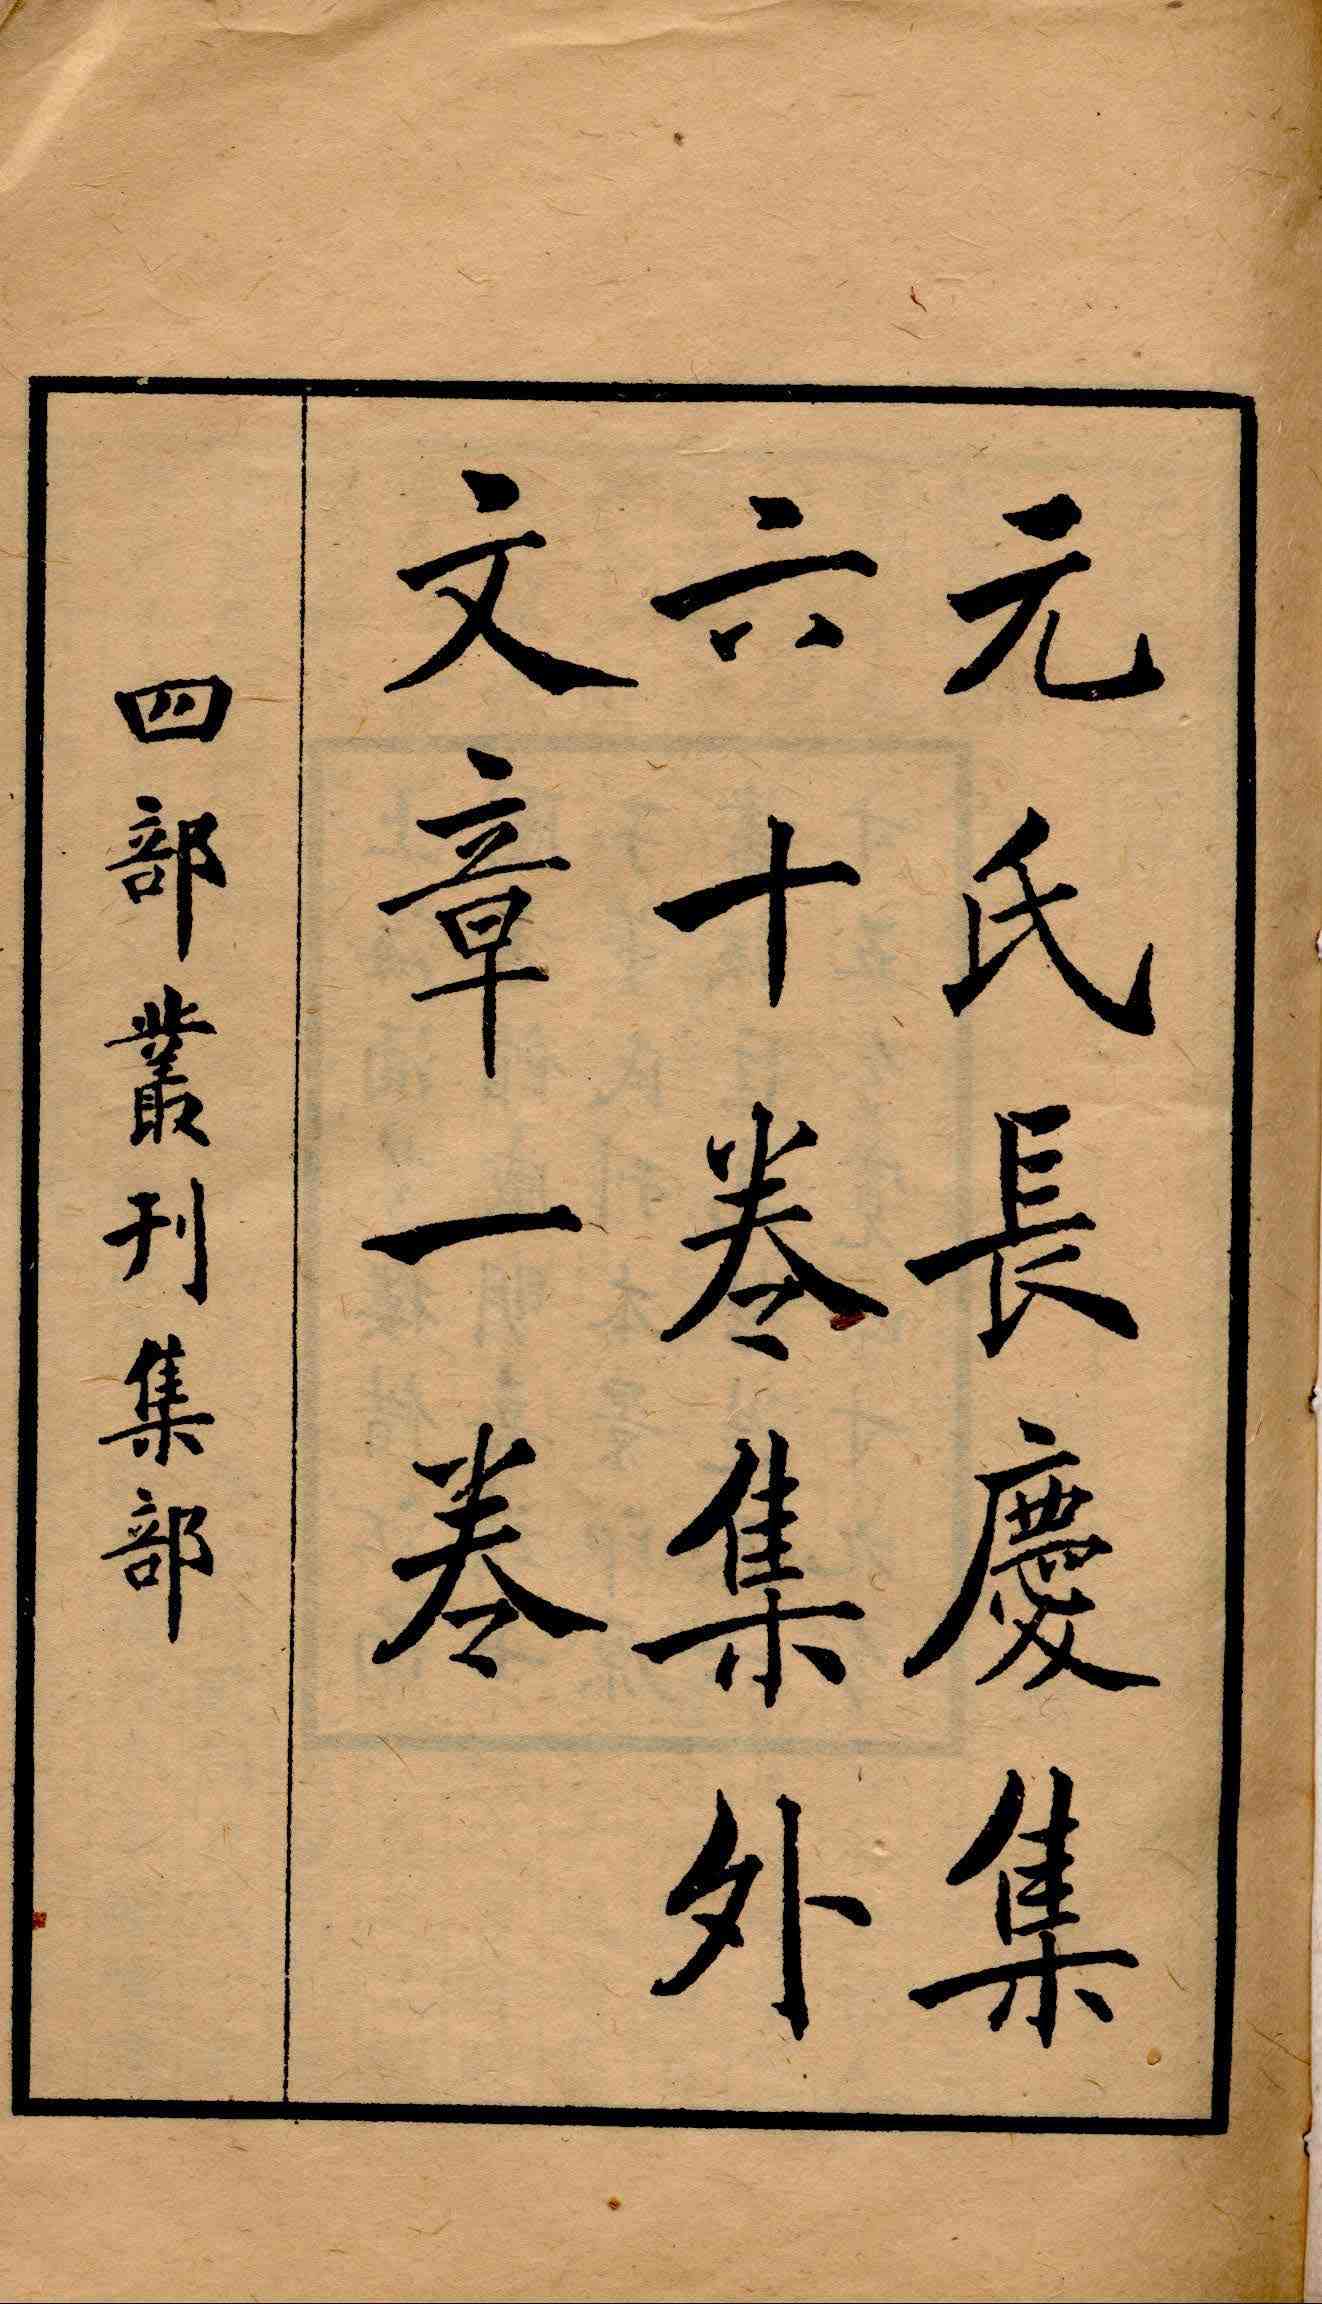 元氏長慶集
六十卷集外
文章一卷
四部叢刊集部